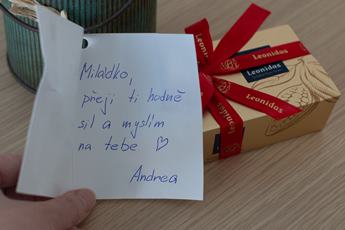 Miládko,
přeji ti hodně
sil a myslím
na tebe ♡
Andrea
Leonidas
Leonidas
Leonidas
Leonidas